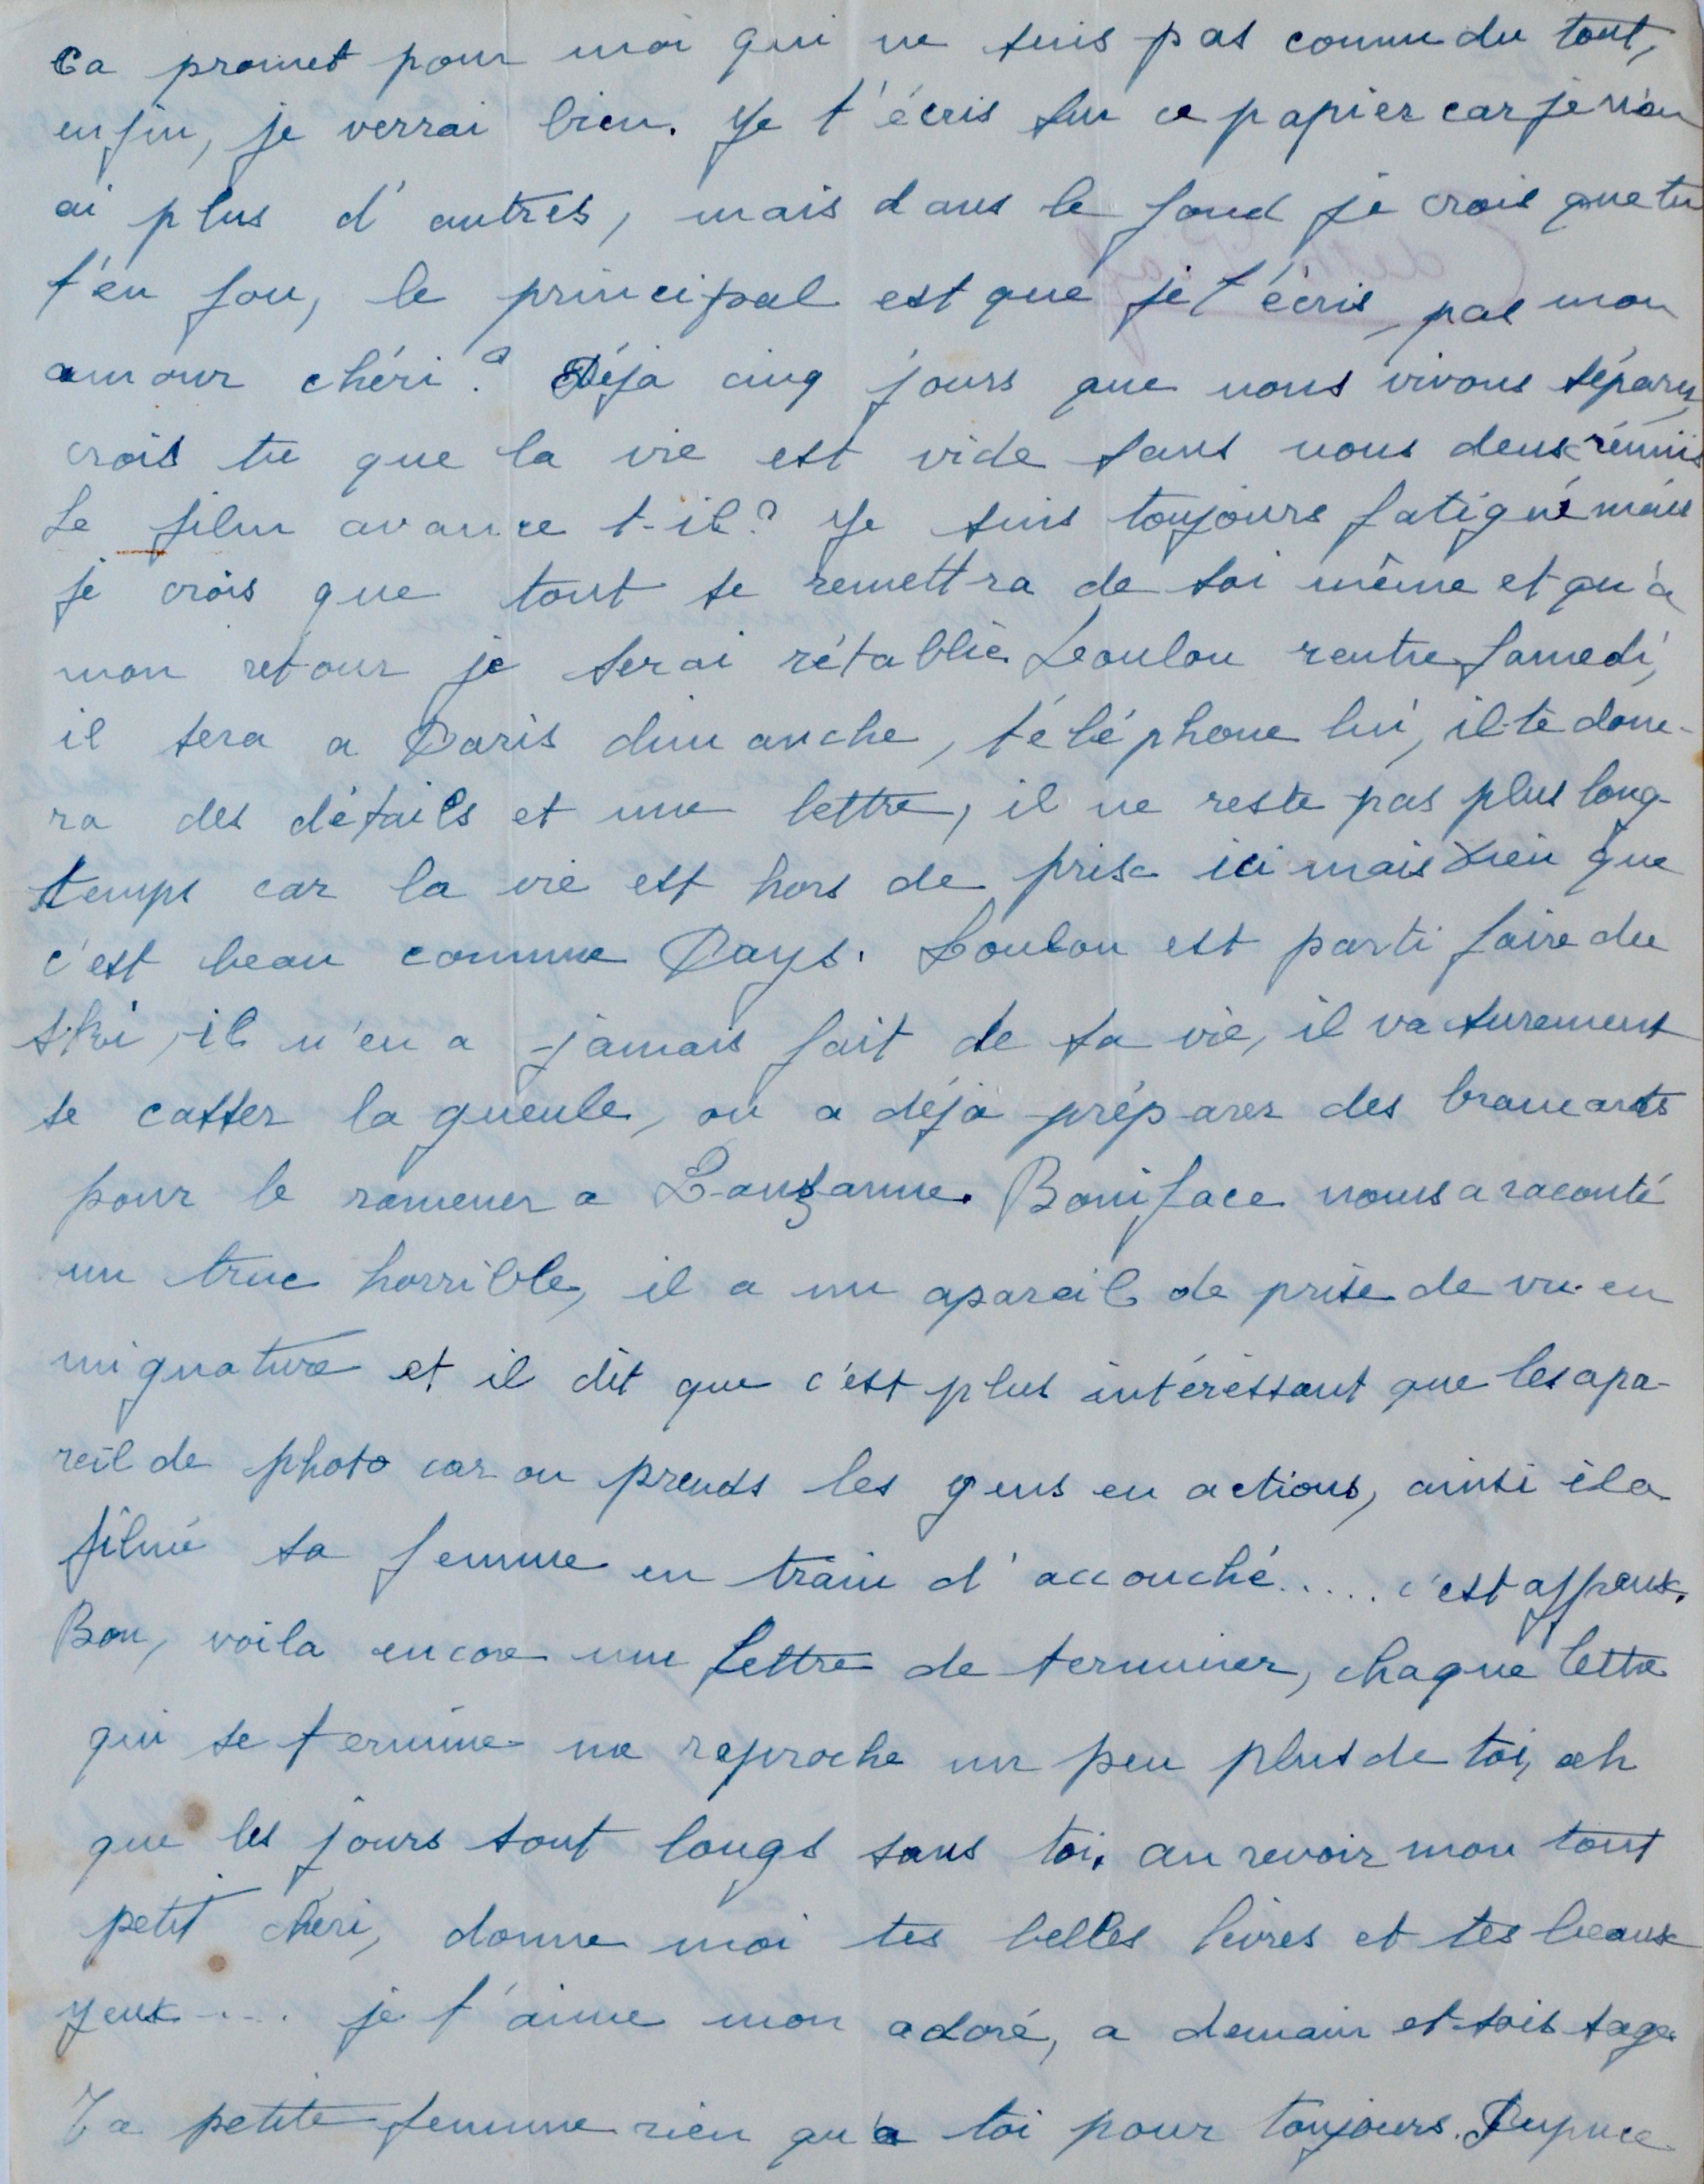 Ca promet pour moi qui ne suis pas connu du tout,
enfin, je verrai bien. Je t'écris sur ce papier car je n'en
ai plus d'autres, mais dans le fond je crois que tu
t'en fou, le principal est que je t'écris pas mon
amour chéri? Déja cinq jours que nous vivons séparés
crois tu que la vie est vide sans nous deux réunis
Le film avance t-il? Je suis toujours fatigué mais
je crois que tout se remettra de soi même et qu'à
mon retour je serai rétablie. Loulou rentre samedi,
il sera a Paris dimanche, téléphone lui, il te done-
ra des détails et une lettre, il ne reste pas plus long-
temps car la vie est hors de prise ici mais Dieu que
c'est beau comme Pays. Loulou est parti faire du
ski, il n'en a jamais fait de sa vie, il va surement
se casser la gueule, on a déja préparer des brancards
pour le ramener a Lausanne. Boniface nous a raconté
un truc horrible, il a un apareil de prise de vu en
mignature et il dit que c'est plus intéréssant que les apa-
reil de photo car on prends les gens en actions, ainsi il a
filmé sa femme en train d'accouché..... c'est affreux.
Bon, voila encore une lettre de terminer, chaque lettre
qui se termine me reproche un peu plus de toi, ah
que les jours sont longs sans toi. au revoir mon tout
petit cheri, donne moi tes belles lèvres et tes beaux
yeux.... je t'aime mon adoré, a demain et sois sage.
Ta petite femme rien qu'a toi pour toujours.